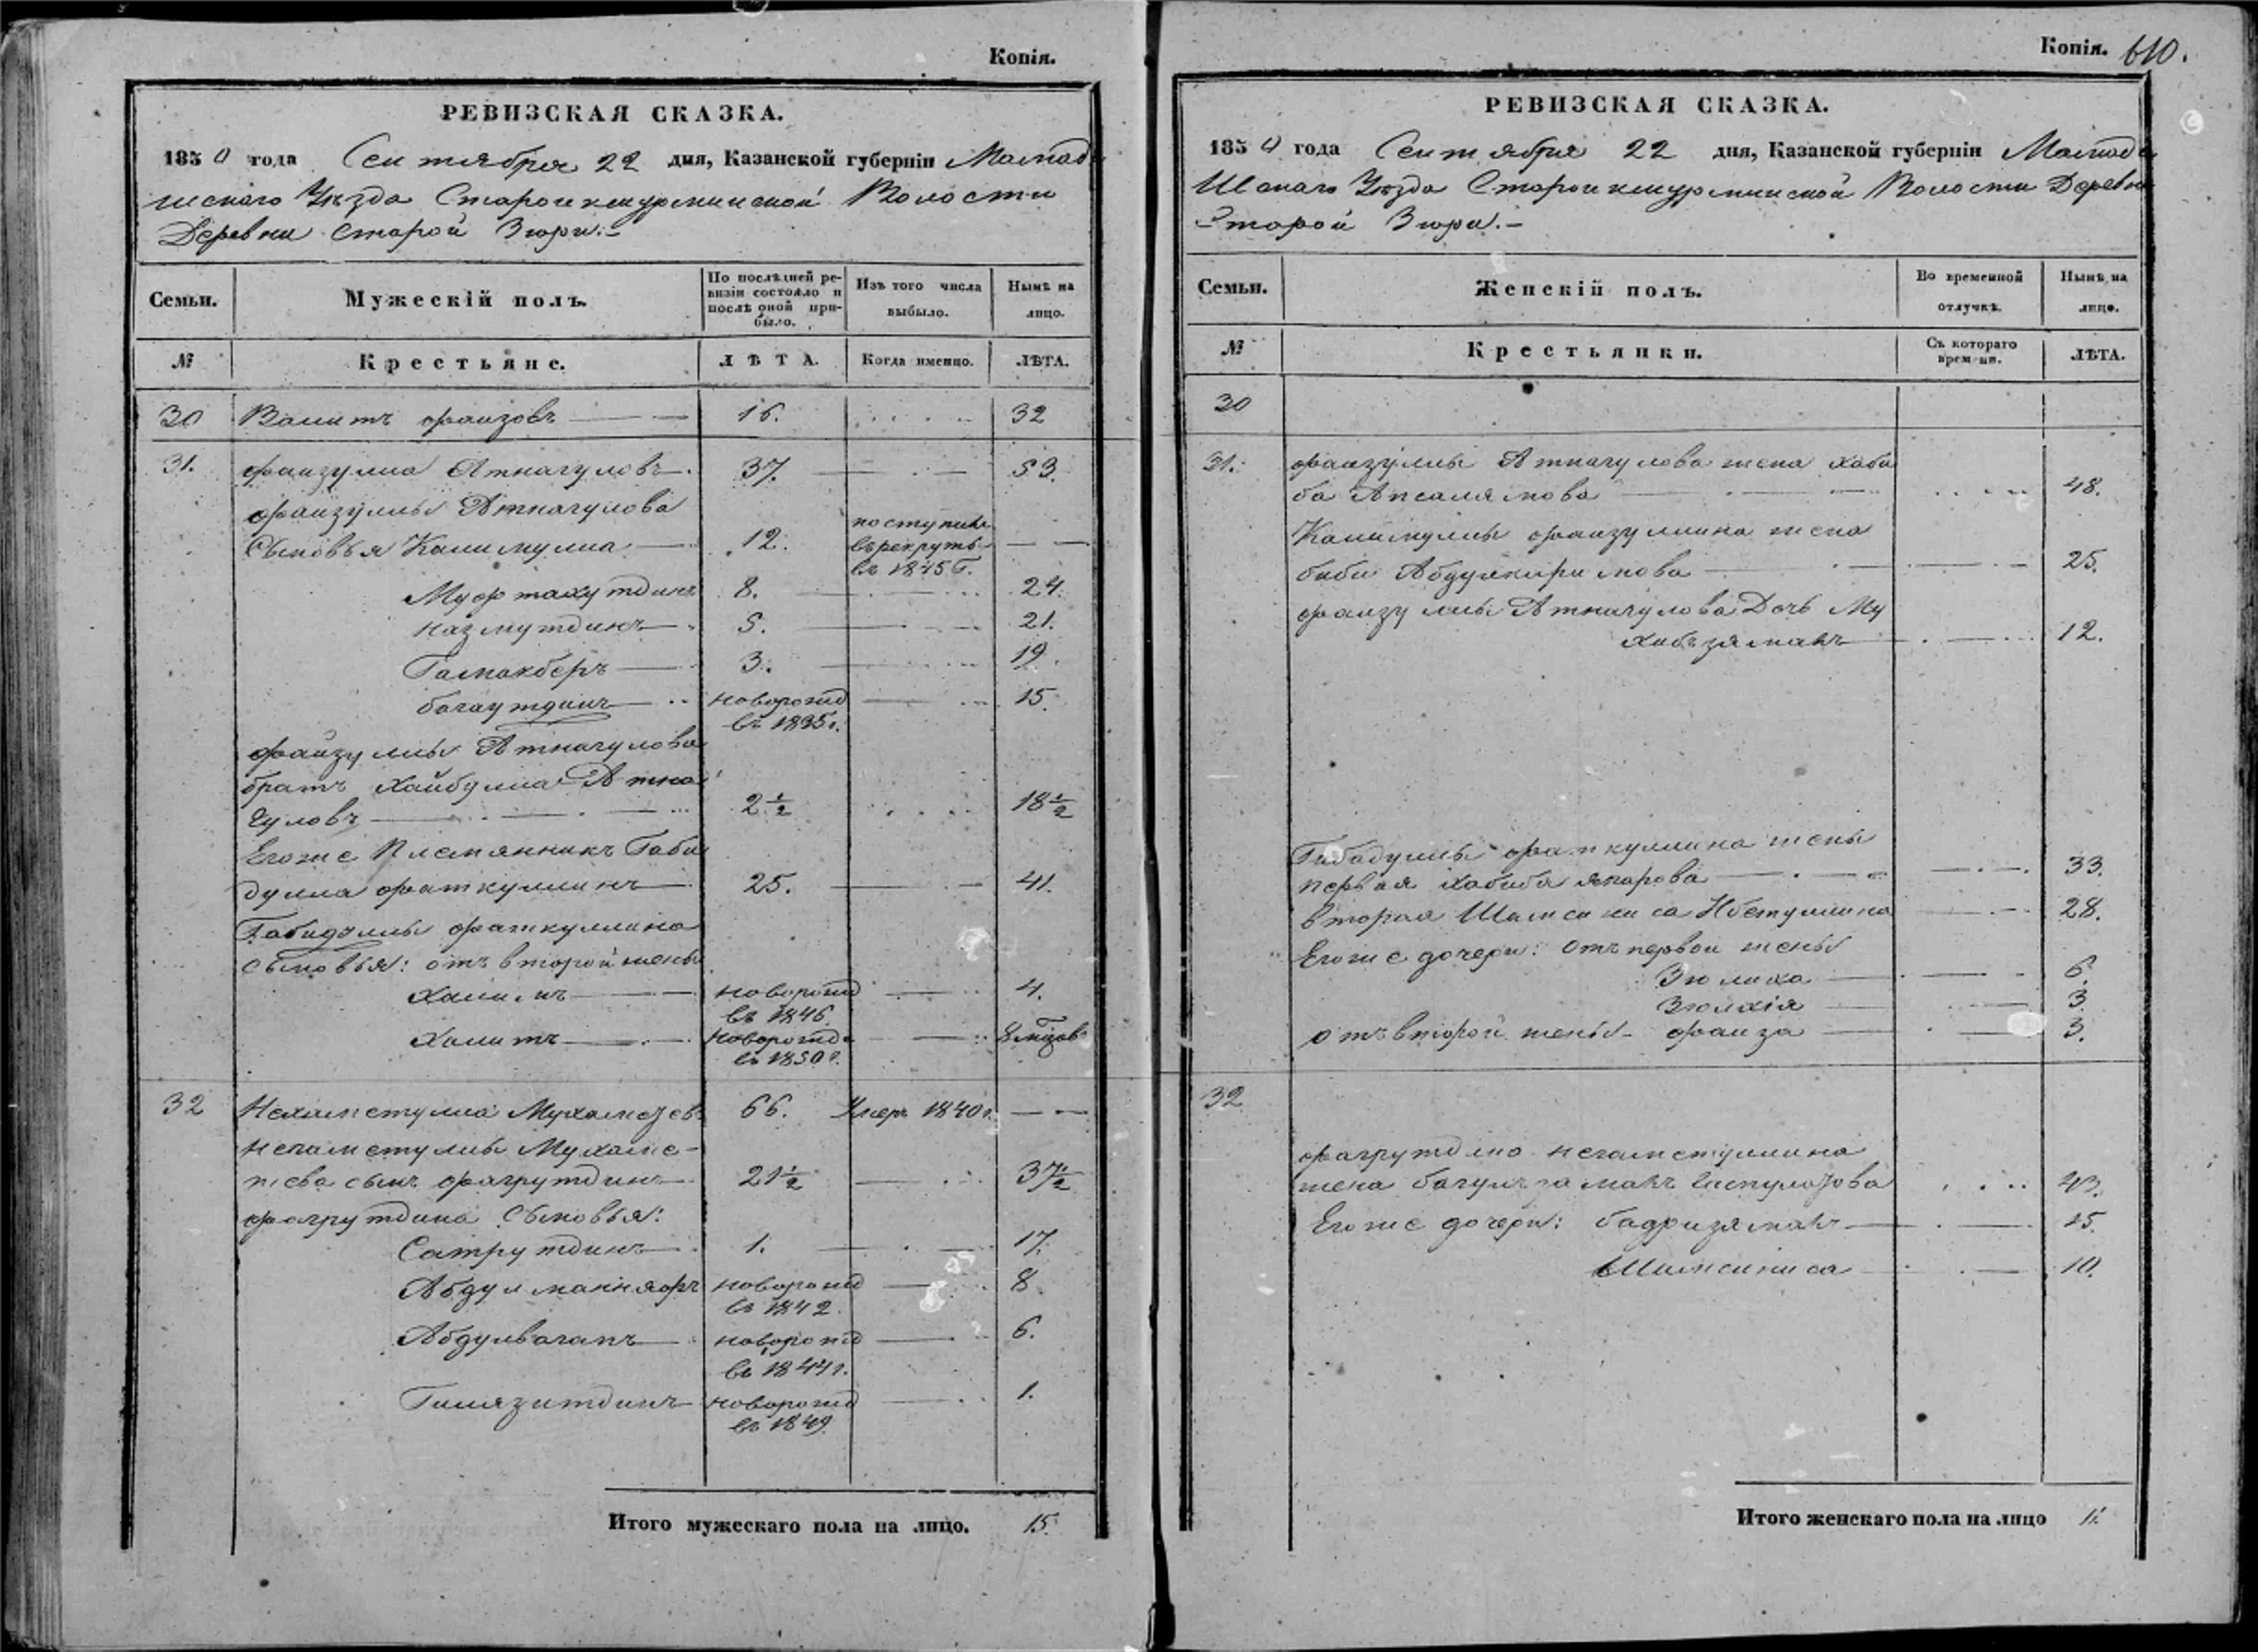 Копія.
РЕВИЗСКАЯ СКАЗКА.
1850 года Сентября 22 дня, Казанской губерніи Мамады
шскаго Уѣзда Староикшурминской Волости
Деревни Старой Зюри.
Семьи.
Мужескій полъ.
По послѣдней ре-
визіи состояло и
послѣ оной при-
было.
Изъ того числа
выбыло.
Нынѣ на
лицо.
№
Крестьяне.
ЛѢТА.
Когда именно.
ЛѢТА.
30 Валитъ Фаизовъ 16. 32
31. Фаизулла Атнагуловъ 37. 53.
Фаизуллы Атнагулова
Сыновья Калимулла 12. поступилъ
въ рекруты
въ 1845 г.
Муфтахутдинъ 8. 24.
Назмутдинъ 5. 21.
Галиакберъ 3. 19.
Багаутдинъ новорожд 15.
въ 1835 г.
Файзуллы Атнагулова
братъ Хайбулла Атна
гуловъ 2 1/2 18 1/2
Егоже Племянникъ Габи
дулла Фаткуллинъ 25. 41.
Габидуллы Фаткуллина
сыновья: отъ второй жены
Халилъ новорожд 4.
въ 1846
Халитъ новорожд
въ 1850 г.
32 Мухаметевъ 66. Умеръ 1840 г.
Мухаме-
тева сынъ Фахрутдинъ 21 1/2 37 1/2
Фахрутдина Сыновья:
Сатрутдинъ 1. 17.
Абдулманнафъ новорожд 8.
въ 1842.
Абдулвагапъ новорожд 6.
въ 1844 г.
Гилязитдинъ новорожд 1.
въ 1849
Итого мужескаго пола на лицо. 15.
Копія. 610.
РЕВИЗСКАЯ СКАЗКА.
1850 года Сентября 22 дня, Казанской губерніи Мамады
Шскаго Уѣзда Староикшурминской Волости Деревни
Старой Зюри.
Семьи.
Женскій полъ.
Во временной
отлучкѣ.
Нынѣ на
лицо.
№
Крестьянки.
Съ котораго
времени.
ЛѢТА.
30
31. Фаизуллы Атнагулова жена Хаби
ба Апсалямова 48.
Калимуллы Фаизуллина жена
биби Абдулкаримова 25.
Фаизуллы Атнагулова Дочь Му
хибъзямалъ 12.
Габадуллы Фаткуллина жены
первая Хабиба Япарова 33.
вторая Шамсиниса 28.
Егоже дочери: отъ первой жены
Зюлиха 6.
Зюлхія 3.
отъ второй жены Фаиза 3.
32
жена 43.
Егоже дочери: Бадризямалъ 15.
Шамсиниса 10.
Итого женскаго пола на лицо 11.